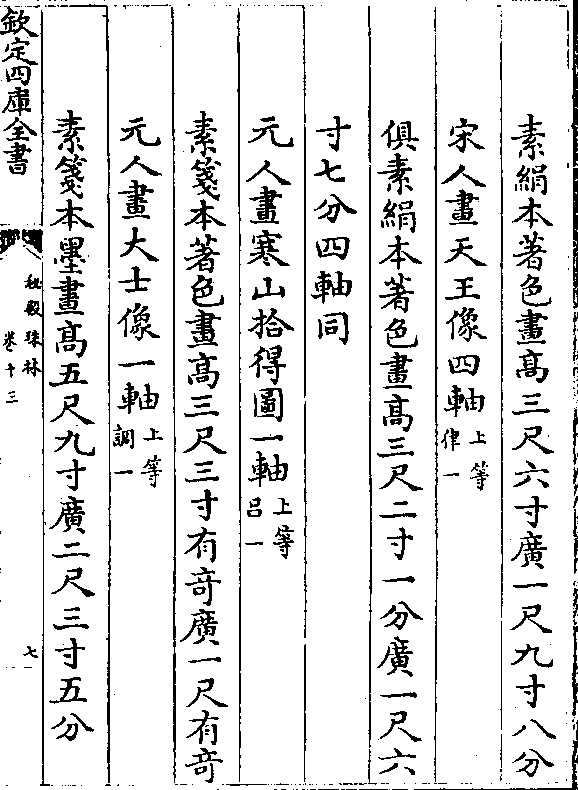 素絹本著色畫髙三尺六寸廣一尺九寸八分
宋人畫天王像四軸上等律一
俱素絹本著色畫髙三尺二寸一分廣一尺六
寸七分四軸同
元人畫寒山拾得圖一軸上等吕一
素箋本著色畫髙三尺三寸有竒廣一尺有竒
元人畫大士像一軸上等調一
素箋本墨畫髙五尺九寸廣二尺三寸五分
欽定四庫全書
秘殿珠林
卷十三
七